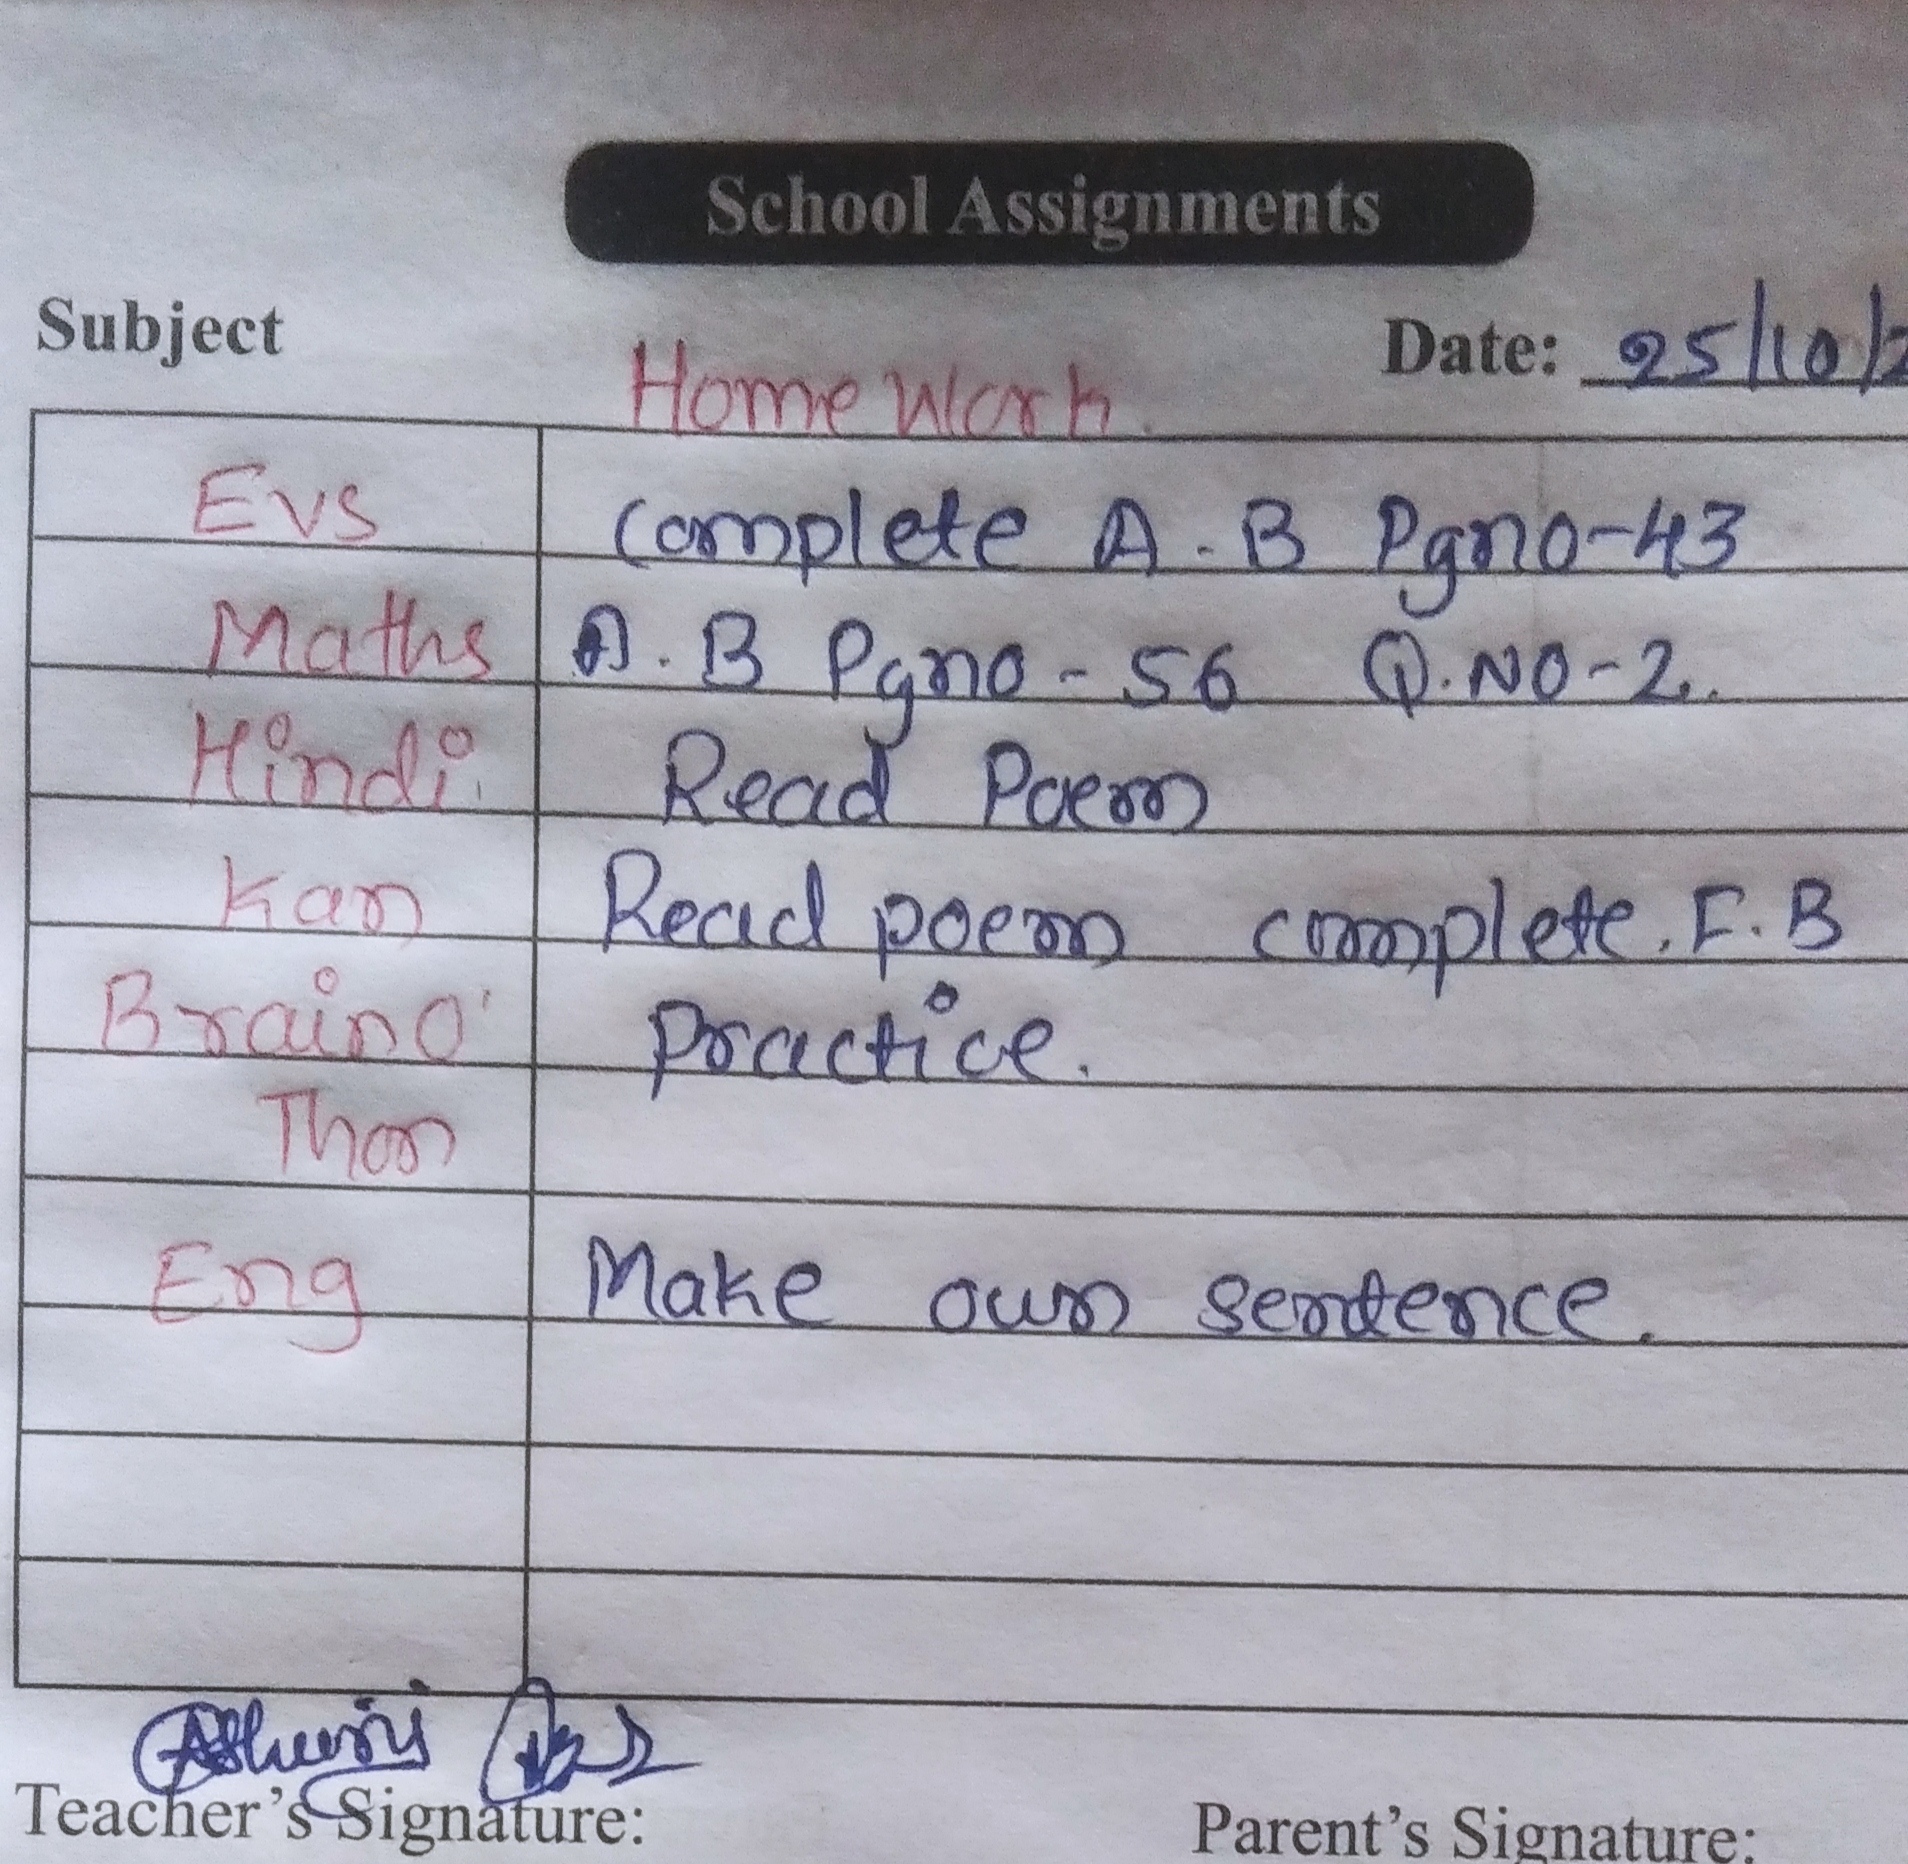 School Assignments
Subject Date: 25/10/2
Home Work.
Evs Complete A.B Pgno-43
Maths A.B Pgno-56 Q.NO-2.
Hindi Read Poem
Kan Read poem complete. F.B
Braino Practice.
Thon
Eng Make own sentence.
Teacher's Signature: Parent's Signature: